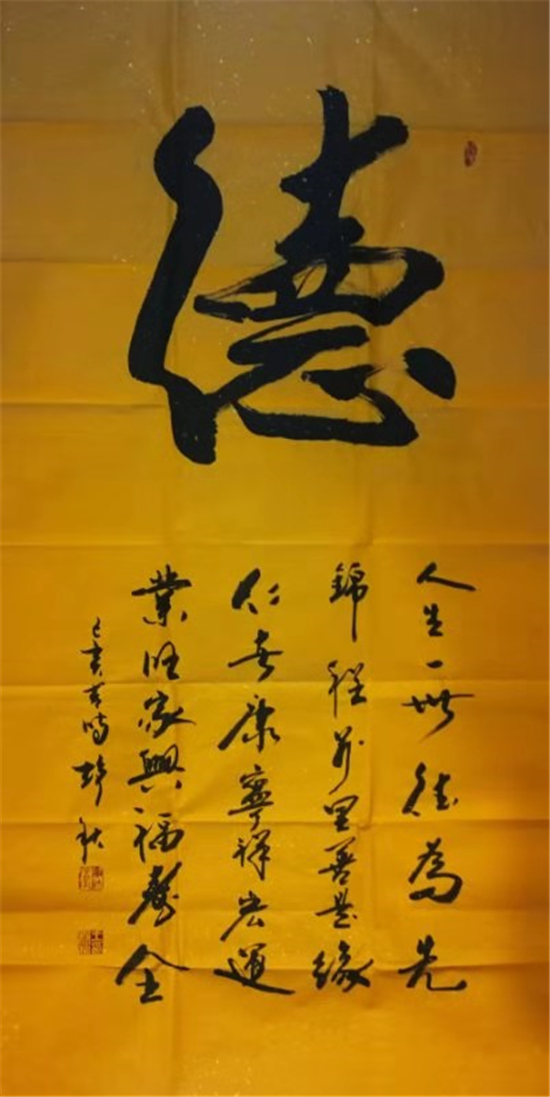 德
人生一世德為先
錦程万里善是緣
仁者康寧祥宏運
業旺家興福壽全
己亥吉時 秋